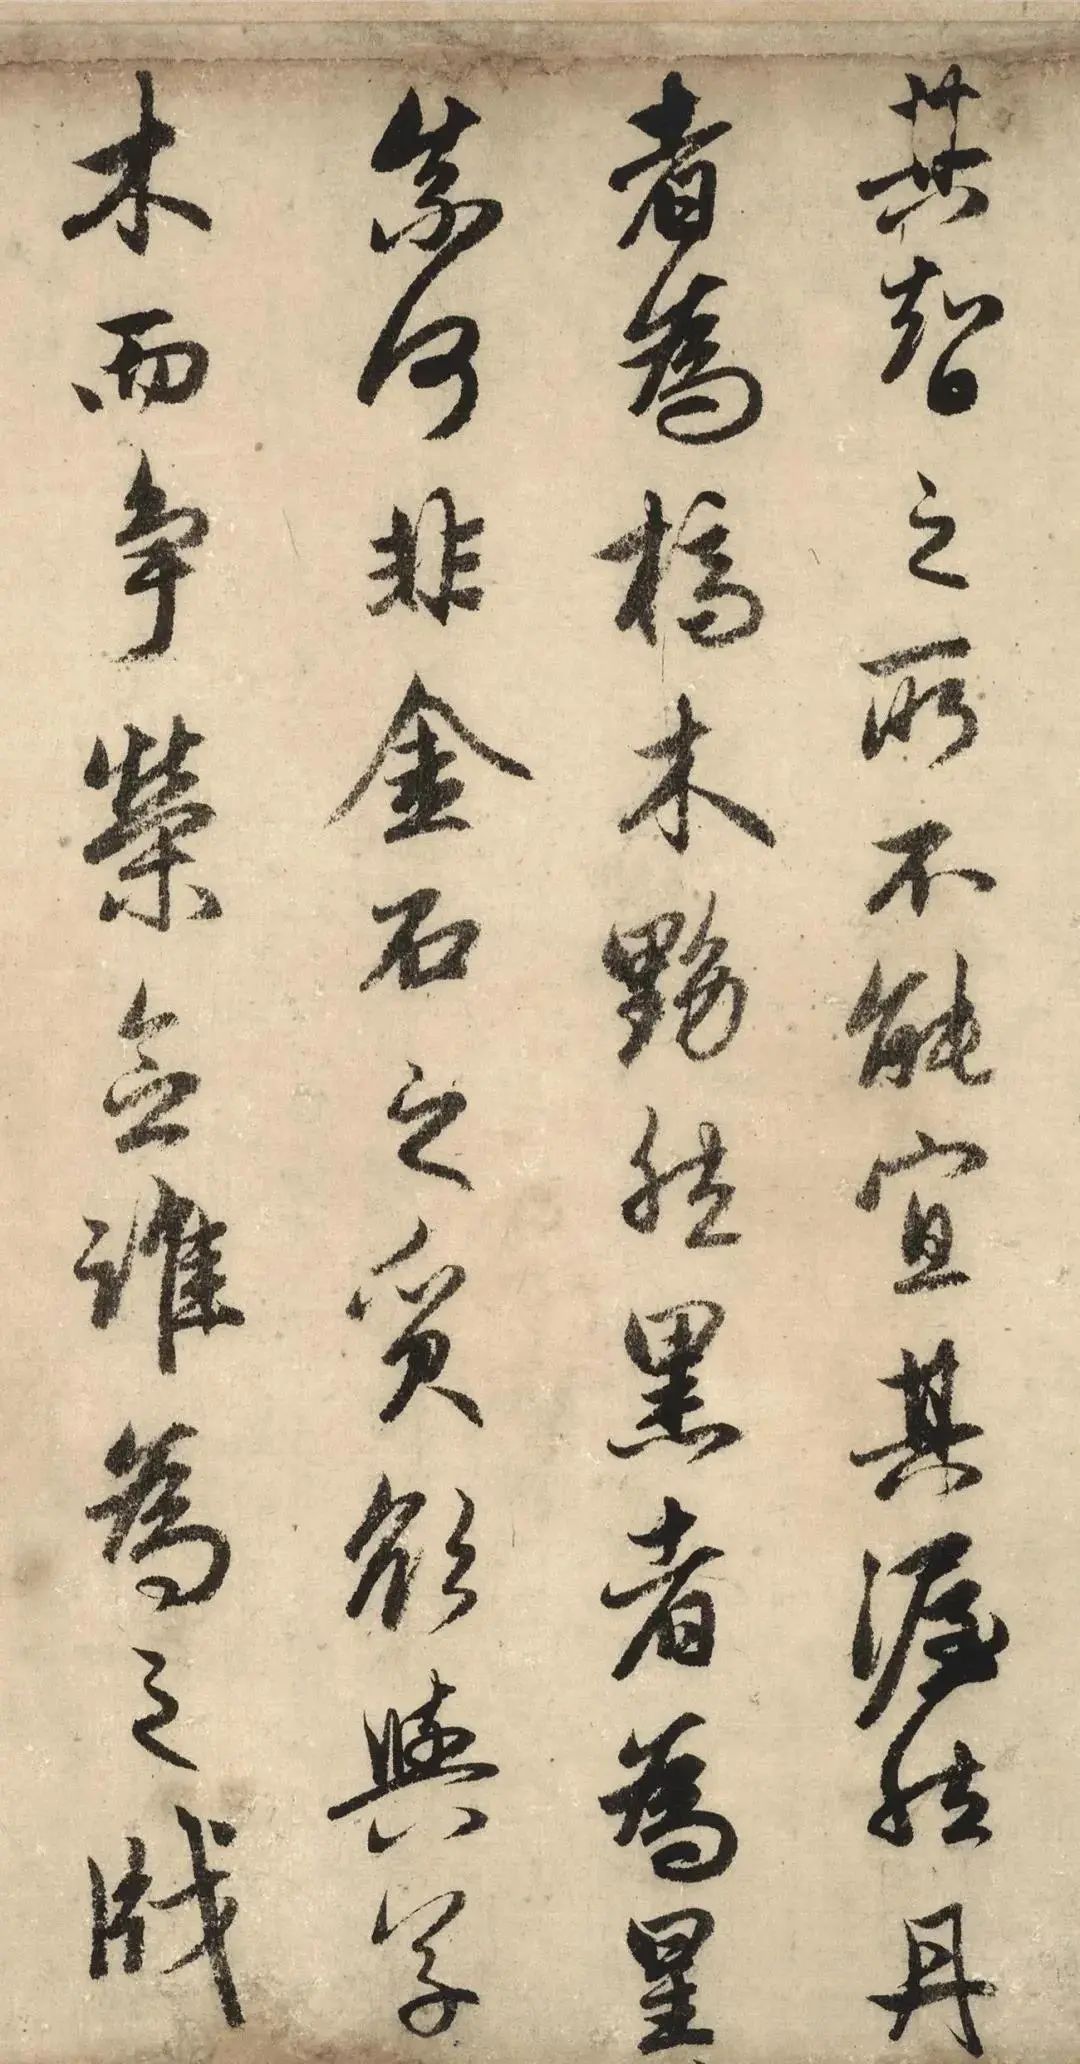 其智之所不能宜其渥然丹
者為槁木黟然黑者為星
奈何非金石之質欲與草
木而爭榮念誰為之戕